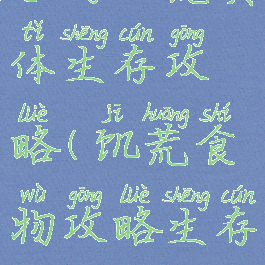 tǐ shēng cún gōng
体生存攻
lüè jī huāng shí
略(饥荒食
wù gōng lüè shēng cún
物攻略生存